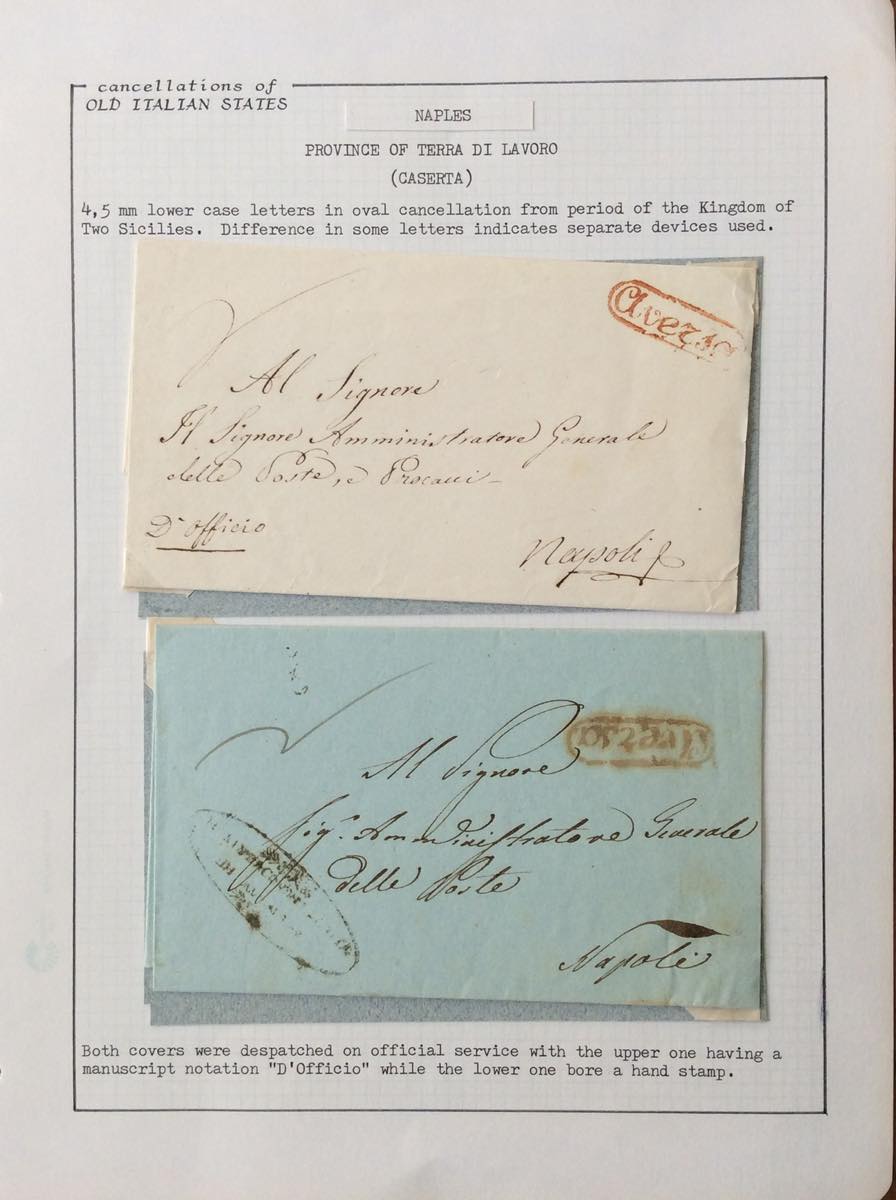 cancellations of
OLD ITALIAN STATES
NAPLES
PROVINCE OF TERRA DI LAVORO
(CASERTA)
4,5 mm lower case letters in oval cancellation from period of the Kingdom of
Two Sicilies. Difference in some letters indicates separate devices used.
Aversa
Al Signore
Il Signore Amministratore Generale
delle Poste, e Procacci
D'Officio
Napoli
Aversa
Al Signore
Sigr. Amministratore Generale
delle Poste
Napoli
Both covers were despatched on official service with the upper one having a
manuscript notation "D'Officio" while the lower one bore a hand stamp.